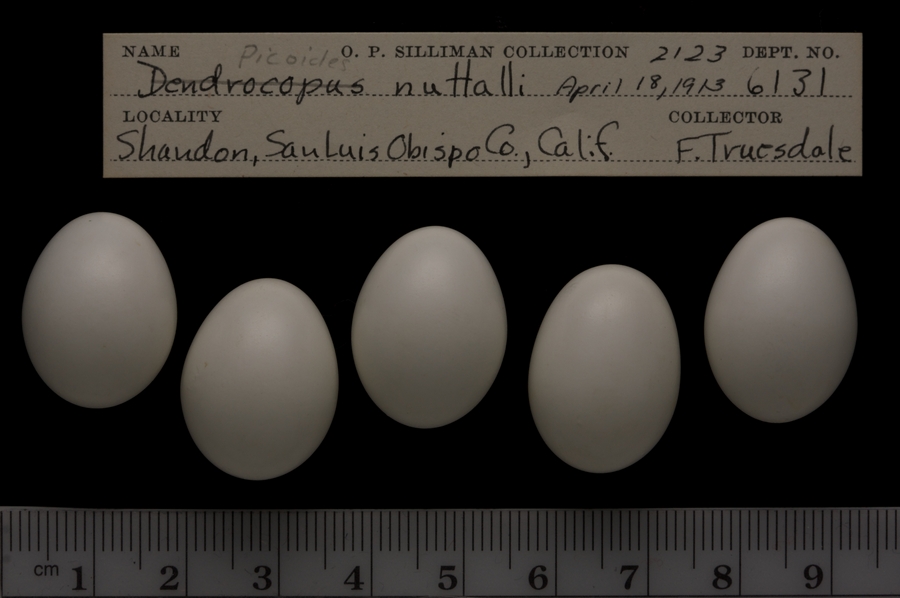 NAME Picoides O. P. SILLIMAN COLLECTION 2123 DEPT. NO.
Dendrocopus nuttalli April 18, 1913 6131
LOCALITY COLLECTOR
Shandon, San Luis Obispo Co., Calif. F. Truesdale
cm 1 2 3 4 5 6 7 8 9